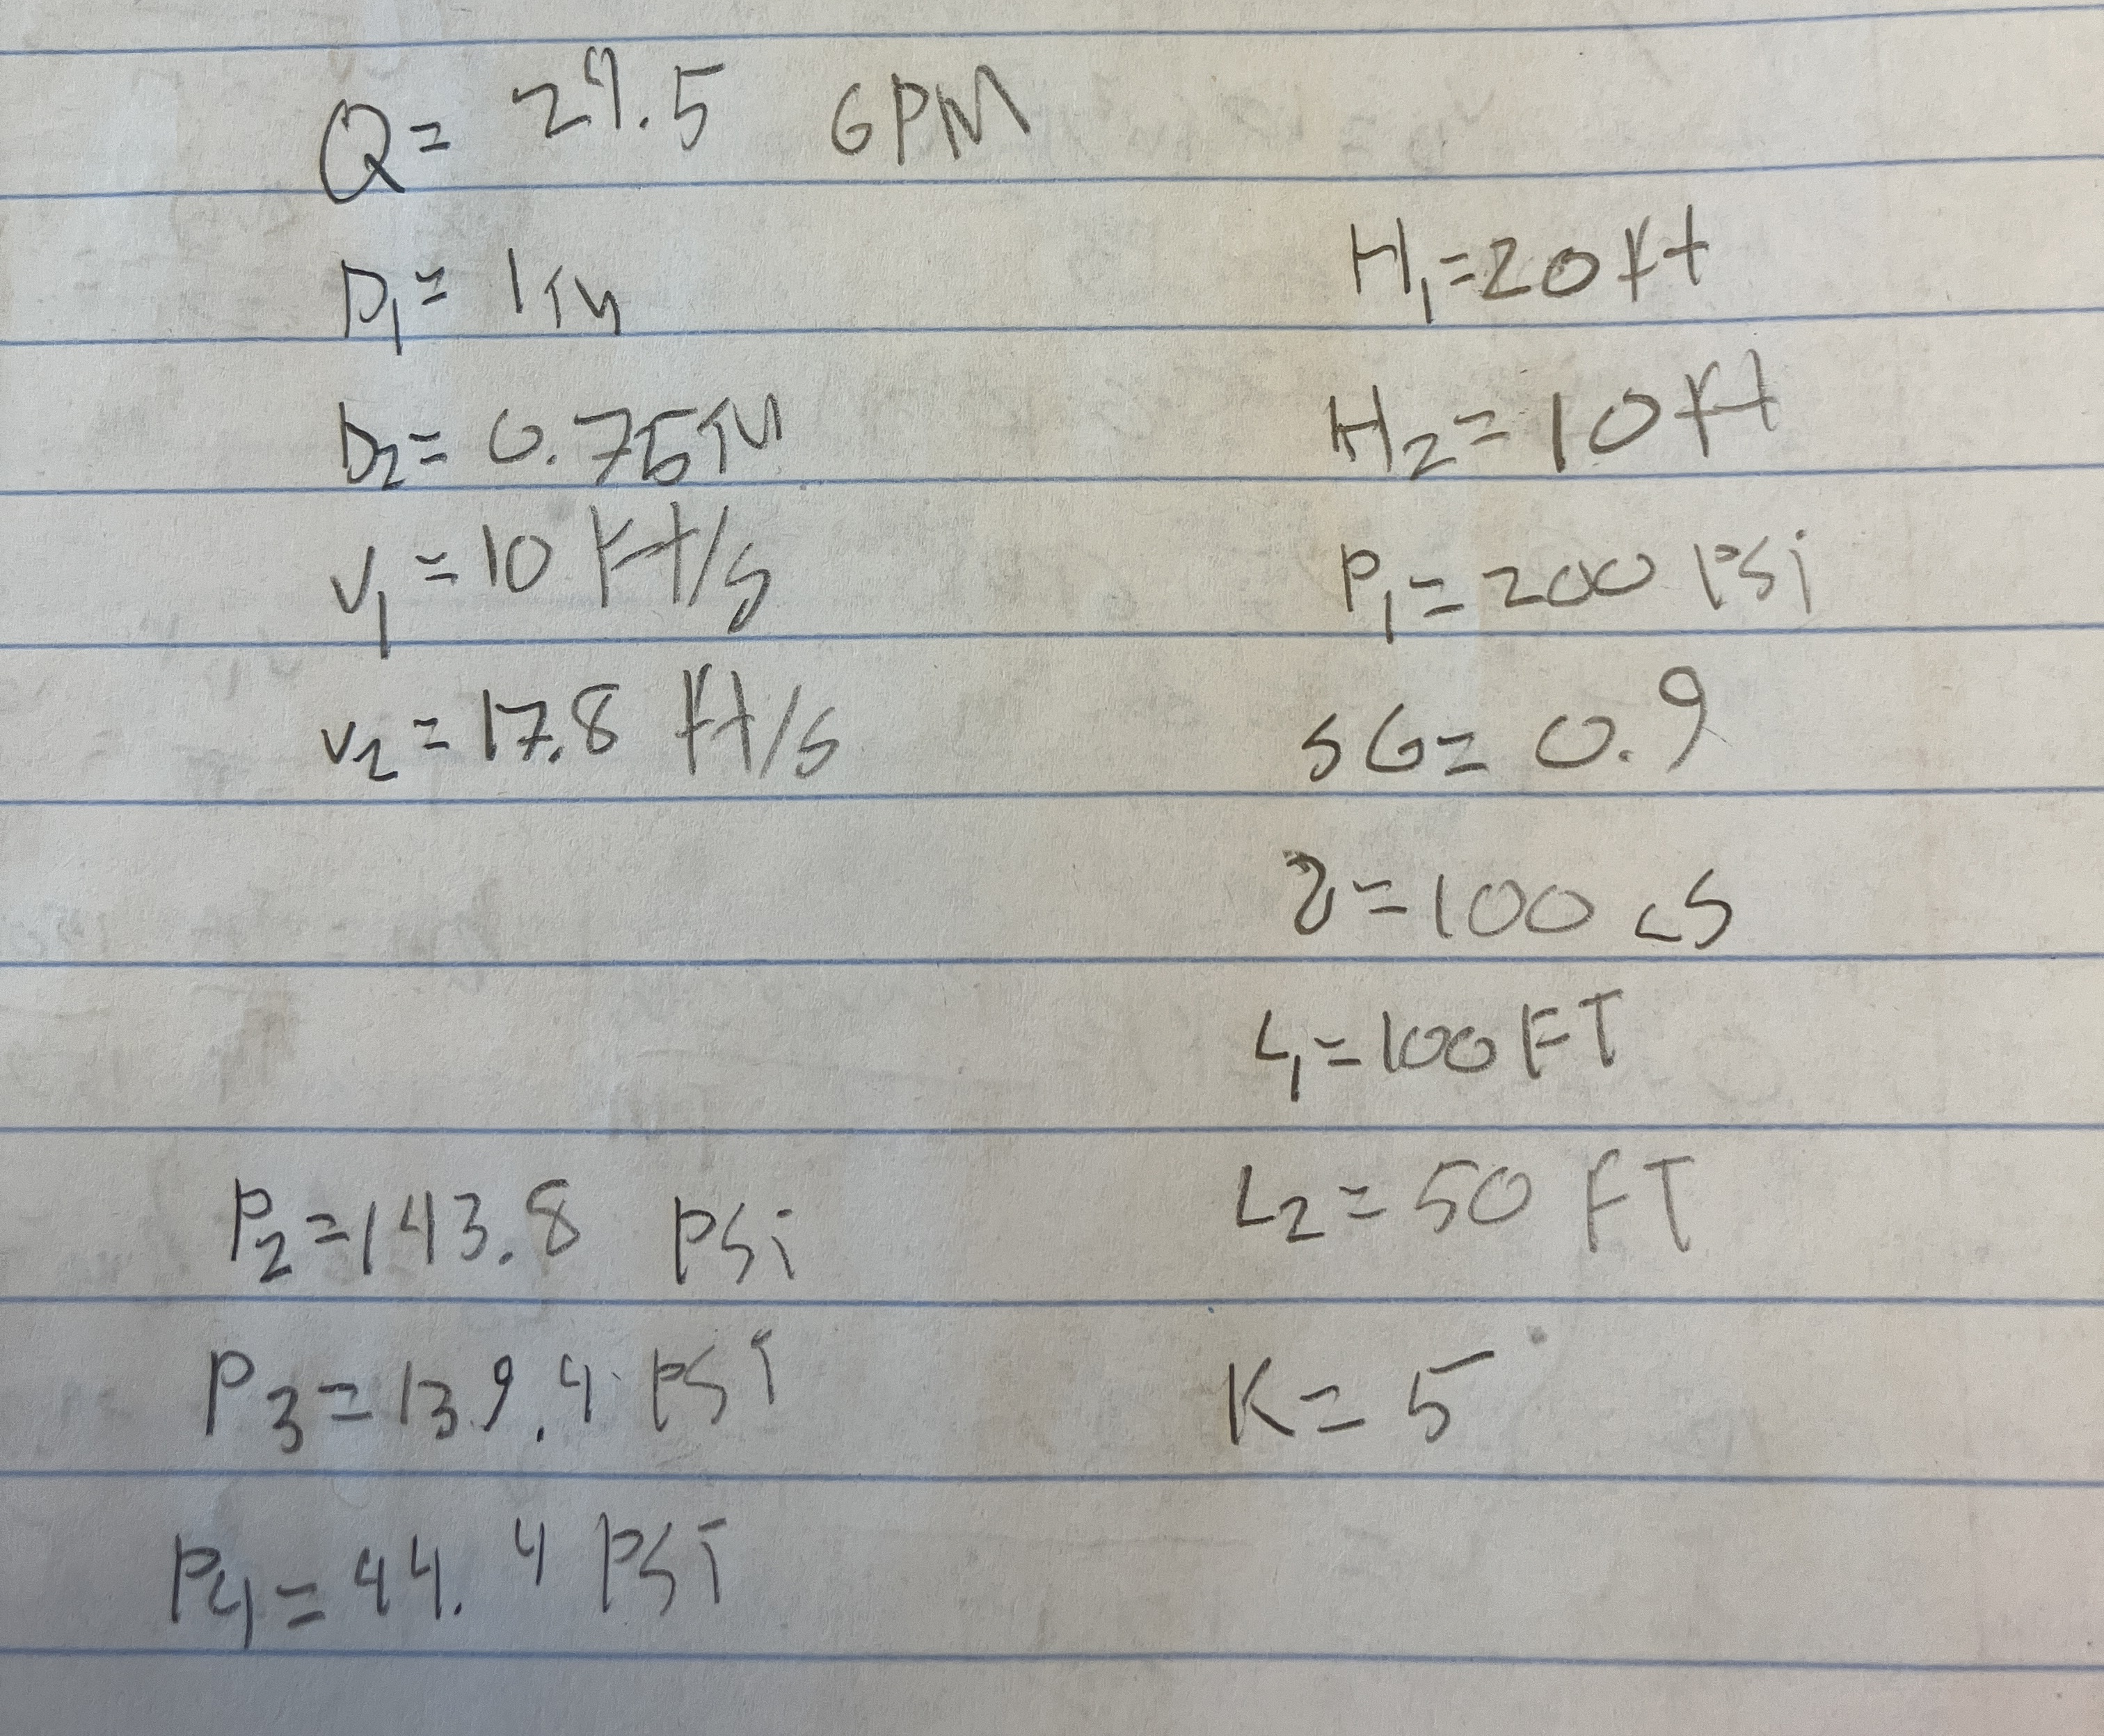 Q= 24.5 GPM
D₁= 1 IN
D₂= 0.75 IN
V₁ = 10 Ft/s
V₂ = 17.8 Ft/s
P₂=143.8 PSi
P₃=139.4 PSI
P₄=44.4 PSI
H₁=20 Ft
H₂=10 Ft
P₁=200 PSi
SG= 0.9
ν=100 cS
L₁=100 FT
L₂=50 FT
K=5